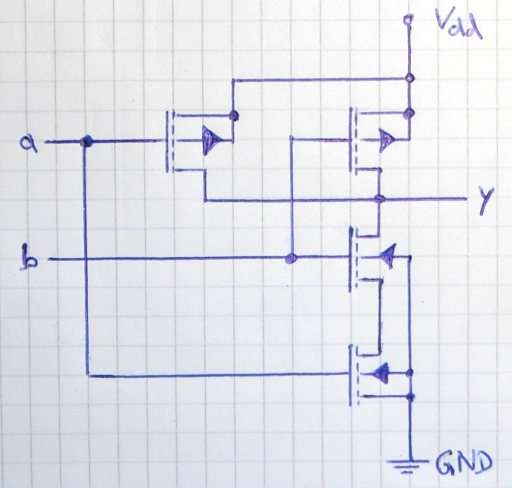 Vdd
a
y
b
GND